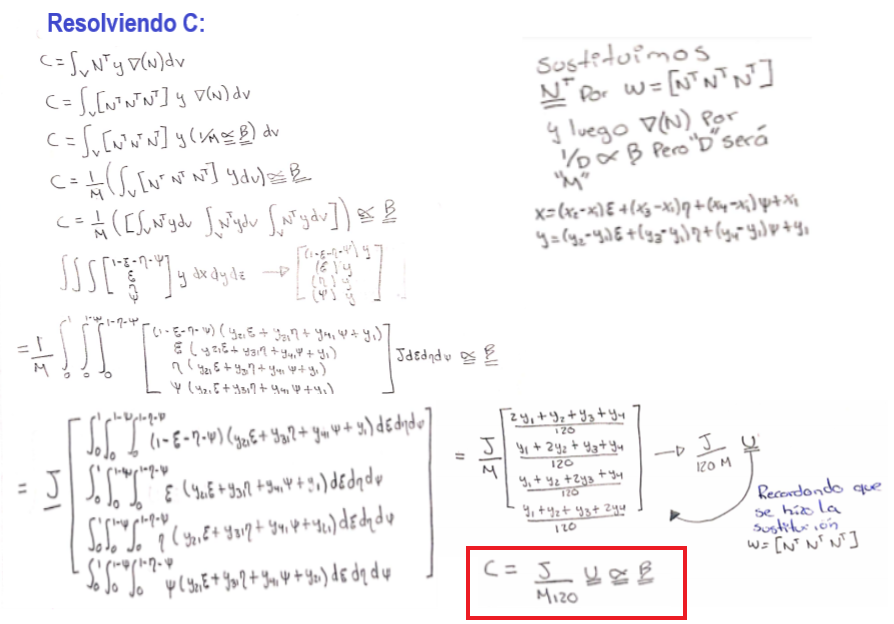 Resolviendo C:
C = ∫_V N^T y ∇(N) dv
C = ∫_V [N^T N^T N^T] y ∇(N) dv
C = ∫_V [N^T N^T N^T] y (1/M ∝ B) dv
C = 1/M (∫_V [N^T N^T N^T] y dv) ∝ B
C = 1/M ([∫_V N^T y dv ∫_V N^T y dv ∫_V N^T y dv]) ∝ B
∫∫∫ [1-ε-η-ψ ε η ψ] y dx dy dz → [(1-ε-η-ψ) y (ε) y (η) y (ψ) y]
= 1/M ∫_0^1 ∫_0^{1-ψ} ∫_0^{1-η-ψ} [(1-ε-η-ψ)(y21ε + y31η + y41ψ + y1)
ε (y21ε + y31η + y41ψ + y1)
η (y21ε + y31η + y41ψ + y1)
ψ (y21ε + y31η + y41ψ + y1)] J dε dη dψ ∝ B
= J [∫_0^1 ∫_0^{1-ψ} ∫_0^{1-η-ψ} (1-ε-η-ψ) (y21ε + y31η + y41ψ + y1) dε dη dψ
∫_0^1 ∫_0^{1-ψ} ∫_0^{1-η-ψ} ε (y21ε + y31η + y41ψ + y1) dε dη dψ
∫_0^1 ∫_0^{1-ψ} ∫_0^{1-η-ψ} η (y21ε + y31η + y41ψ + y21) dε dη dψ
∫_0^1 ∫_0^{1-ψ} ∫_0^{1-η-ψ} ψ (y21ε + y31η + y41ψ + y21) dε dη dψ]
= J/M [2y1 + y2 + y3 + y4 / 120
y1 + 2y2 + y3 + y4 / 120
y1 + y2 + 2y3 + y4 / 120
y1 + y2 + y3 + 2y4 / 120] → J/120 M U
C = J/M120 U ∝ B
Sustituimos
N^T Por W = [N^T N^T N^T]
y luego ∇(N) Por
1/D ∝ B Pero "D" será
"M"
x = (x2-x1)ε + (x3-x1)η + (x4-x1)ψ + x1
y = (y2-y1)ε + (y3-y1)η + (y4-y1)ψ + y1
Recordando que
se hizo la
sustitución
W = [N^T N^T N^T]